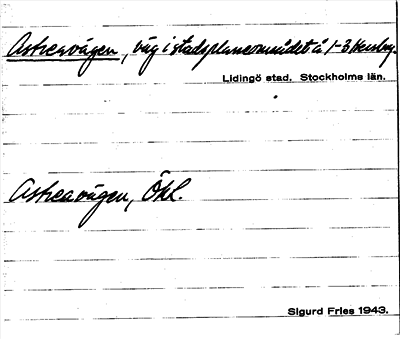 Astreavägen, väg i stadsplaneområdet å 1-3 Hersby.
Lidingö stad. Stockholms län.
Astreavägen, ÖKL.
Sigurd Fries 1943.